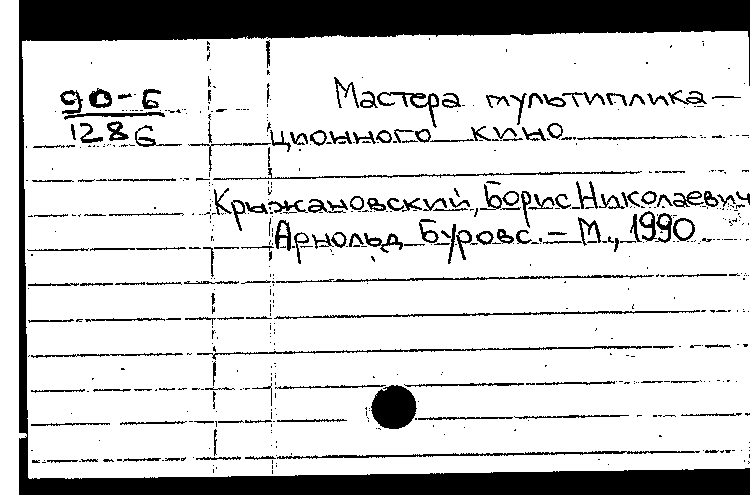 90-6
1286
Мастера мультиплика-
ционного кино
Крыжановский, Борис Николаевич
Арнольд Буровс. - М., 1990.